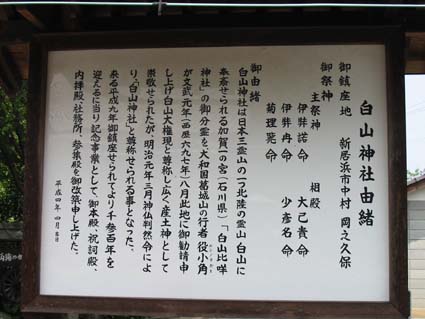 白山神社由緒
御鎮座地　新居浜市中村　岡之久保
御祭神
主祭神　相殿
伊弉諾命　大己貴命
伊弉冉命　少彦名命
菊理姫命
御由緒
白山神社は日本三霊山の一つ北陸の霊山白山に
奉斎せられる加賀一の宮(石川県)「白山比咩
神社」の御分霊を、大和国葛城山の行者 役小角
が文武元年(西暦六九七年)八月此地に御勧請申
し上げ白山大権現と尊称し広く産土神として
崇敬せられたが、明治元年三月神仏判然令によ
り、「白山神社」と尊称せられる事となった。
来る平成九年御鎮座せられてより千参百年を
迎えるに当り記念事業として、御本殿、祝詞殿、
内拝殿、社務所、参集殿を御改築申し上げた。
平成四年四月吉日